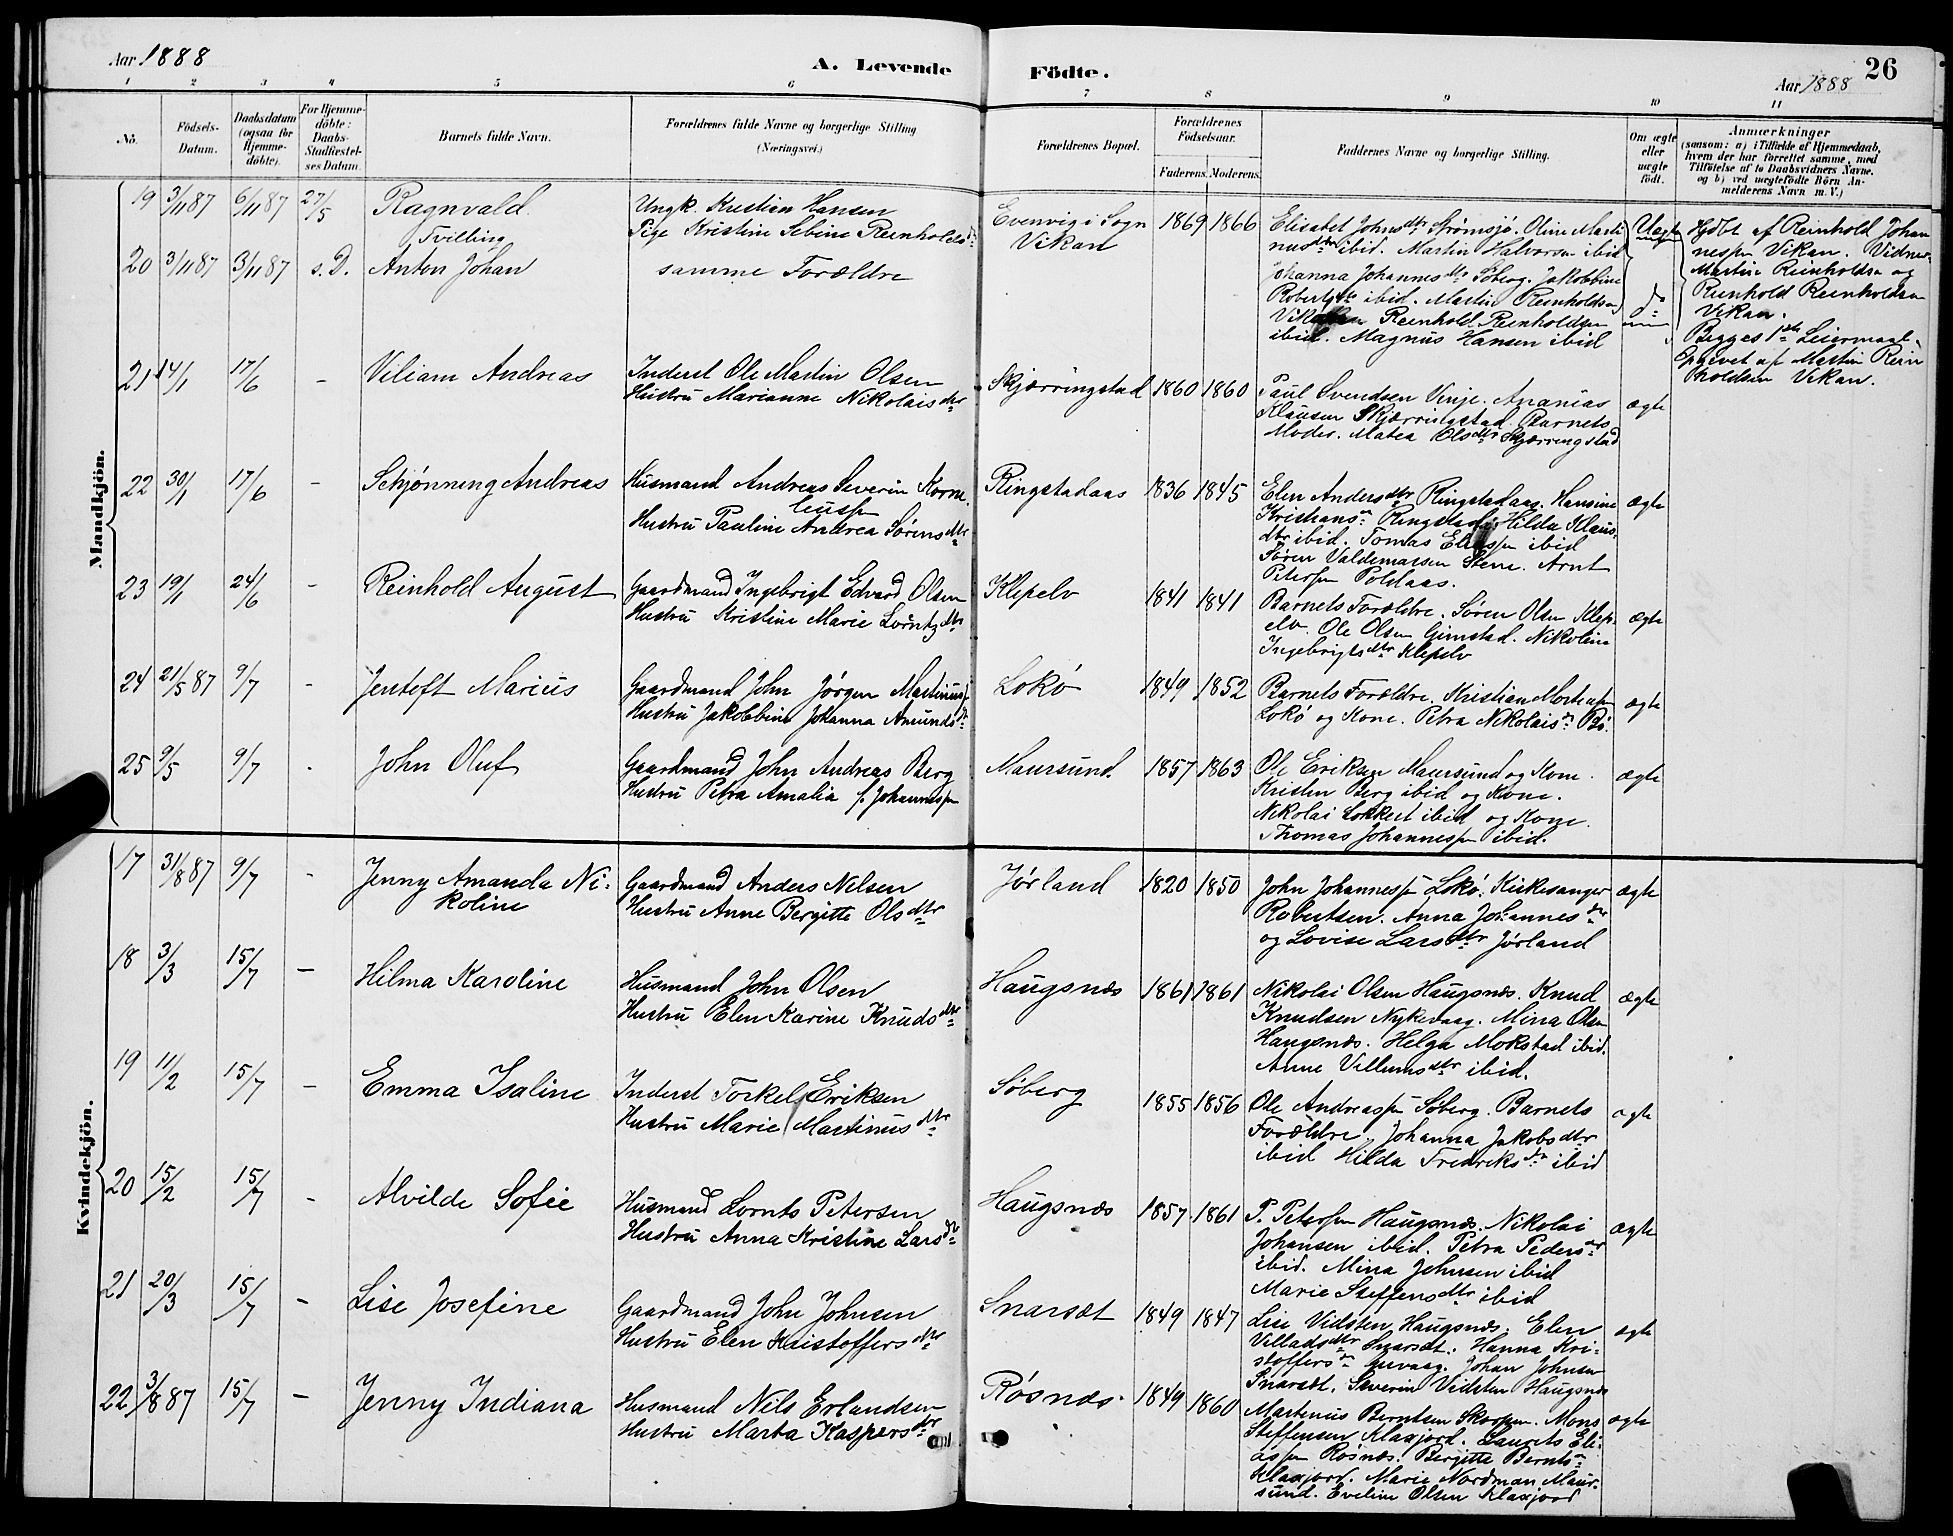 Aar 1888
A. Levende Födte.
Aar 1888
26
1 2 3 4 5 6 7 8 9 10 11
No.
Födsels-Datum.
Daabsdatum (ogsaa for Hjemmedöbte).
For Hjemmedöbte: Daabs-Stadfæstelses Datum.
Barnets fulde Navn.
Forældrenes fulde Navne og borgerlige Stilling (Næringsvei.)
Forældrenes Bopæl.
Forældrenes Födselsaar.
Faderens. Moderens.
Faddernes Navne og borgerlige Stilling.
Om ægte eller uægte födt.
Anmærkninger
(saasom: a) i Tilfælde af Hjemmedaab,
hvem der har forrettet samme, med
Tilföielse af to Daabsvidners Navne.
og b) ved uægtefödte Börn Anmelderens Navn m. V.)
Mandkjön.
19 3/11 87 6/11 87 27/5 Ragnvald Tvilling
Ungk. Kristian Hansen
Pige Kristine Sebine Reinholdsdtr
Evenvig i Sogn
Vikan
1869 1866
Elisabet Johnsdtr Strømsjø. Oline Marti
nusdtr ibid. Martin Halvorsen ibid
Uægte
Hjdbt af Reinhold Johan
nessen Vikan. Vidner
Martin Reinholdsen og
Reinhold Reinholdsen
Vikan.
20 3/11 87 3/11 87 s. D. Anton Johan
samme Forældre
Johanna Johannesdtr Søberg. Jakobbine
Robertsdtr ibid. Martin Reinholdsen
Vikan Reinhold Reinholdsen
ibid. Magnus Hansen ibid
do
Begges 1ste Leiermaal.
Opgivet af Martin Rein
holdsen Vikan.
21 14/1 17/6 - Viliam Andreas
Inderst Ole Martin Olsen
Hustru Marianne Nikolaisdtr
Skjærringstad 1860 1860
Paul Svendsen Vinje. Ananias
Klausen Skjærringstad. Barnets
Moder. Matea Olsdtr Skjærringstad
ægte
22 30/1 17/6 - Schjønning Andreas
Husmand Andreas Severin Korne
liussen
Hustru Pauline Andrea Sørensdtr
Ringstadaas 1836 1845
Elen Andersdtr Ringstadaas. Hansine
Kristiansdtr Ringstad. Hilda Klaus
dtr ibid. Tomas Eliassen ibid
Søren Valdemarsen Stene. Arnt
Petersen Poldaas.
ægte
23 19/1 24/6 - Reinhold August
Gaardmand Ingebrigt Edvard Olsen
Hustru Kristine Marie Lorntzdtr
Klepelv 1841 1841
Barnets Forældre. Søren Olsen Klep-
elv. Ole Olsen Gimstad. Nikoline
Ingebrigtsdtr Klepelv
ægte
24 21/5 87 9/7 - Jentoft Marius
Gaardmand John Jørgen Martinussen
Hustru Jakobbine Johanna Amundsdtr
Lokø 1849 1852
Barnets Forældre. Kristian Mortensen
Lokø og Kone. Petra Nikolaisdtr Bø.
ægte
25 9/5 9/7 - John Oluf
Gaardmand John Andreas Berg
Hustru Petra Amalia f. Johannessen
Maursund. 1857 1863
Ole Eriksen Maursund og Kone.
Kristen Berg ibid og Kone.
Nikolai Lokkert ibid og Kone.
Thomas Johannessen ibid.
ægte
Kvindekjön.
17 31/8 87 9/7 - Jenny Amanda Ni-
koline
Gaardmand Anders Nelsen
Hustru Anne Bergitte Olsdtr
Jørland 1820 1850
John Johannessen Lokø. Kirkesanger
Robertsen. Anna Johannesdtr
og Lovise Larsdtr Jørland
ægte
18 3/3 15/7 - Hilma Karoline
Husmand John Olsen
Hustru Elen Karine Knudsdtr
Haugsnæs 1861 1861
Nikolai Olsen Haugsnæs. Knud
Knudsen Nykevaag. Mina Olsen
Haugsnæs. Helga Mokstad ibid.
Anne Villumsdtr ibid.
ægte
19 11/2 15/7 - Emma Isaline
Inderst Torkel Eriksen
Hustru Marie Martinusdtr
Søberg 1855 1856
Ole Andreassen Søberg. Barnets
Forældre. Johanna Jakobsdtr
ibid Hilda Fredriksdtr ibid
ægte
20 15/2 15/7 - Alvilde Sofie
Husmand Lornts Petersen
Hustru Anna Kristine Larsdtr
Haugsnæs 1857 1861
P. Petersen Haugsnæs. Nikolai
Johansen ibid. Petra Pedersdtr
ibid. Mina Johnsen ibid
Marie Steffensdtr ibid
ægte
21 20/3 15/7 - Lise Josefine
Gaardmand John Johnsen
Hustru Elen Kristoffersdtr
Snarsæt 1849 1847
Lise Vidsten Haugsnæs. Elen
Villadsdtr Snarsæt. Hanna Kri-
stoffersdtr. Johan Johnsen
Snarsæt. Severin Vidsten Haugsnæs
ægte
22 3/8 87 15/7 - Jenny Indiana
Husmand Nils Erlandsen
Hustru Marta Kaspersdtr
Røsnæs. 1849 1860
Martinus Berntsen Skorpen. Mons
Steffensen Klaxjord. Laurits Eli-
assen Røsnæs. Bergitte Berntsdtr
Klaxjord. Marie Nordman Maur-
sund. Eveline Olsen Klaxjord
ægte